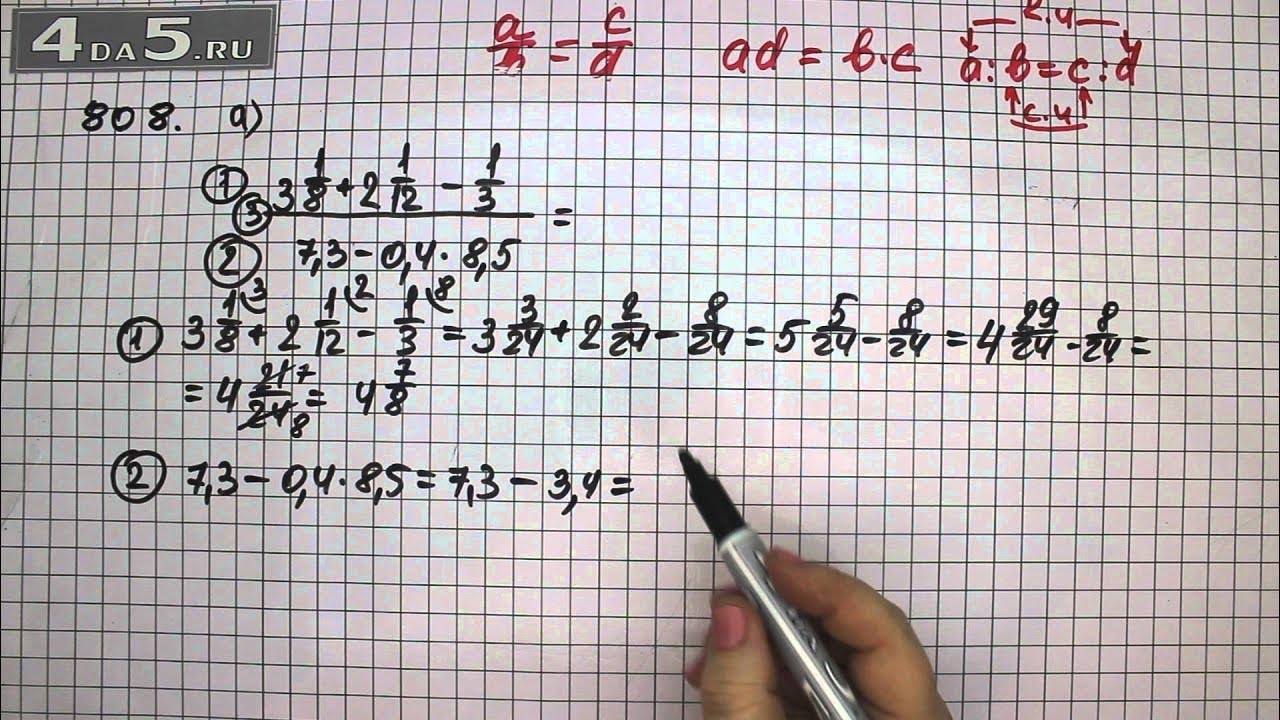 4DA5.RU
a/b = c/d ad = b·c к.ч
a : b = c : d
с.ч
808. а)
① 3 1/8 + 2 1/12 − 1/3
③ =
② 7,3 − 0,4 · 8,5
① 3 1/8 (3 + 2 1/12 (2 − 1/3 (8 = 3 3/24 + 2 2/24 − 8/24 = 5 5/24 − 8/24 = 4 29/24 − 8/24 =
= 4 21 7/24 8 = 4 7/8
② 7,3 − 0,4 · 8,5 = 7,3 − 3,4 =